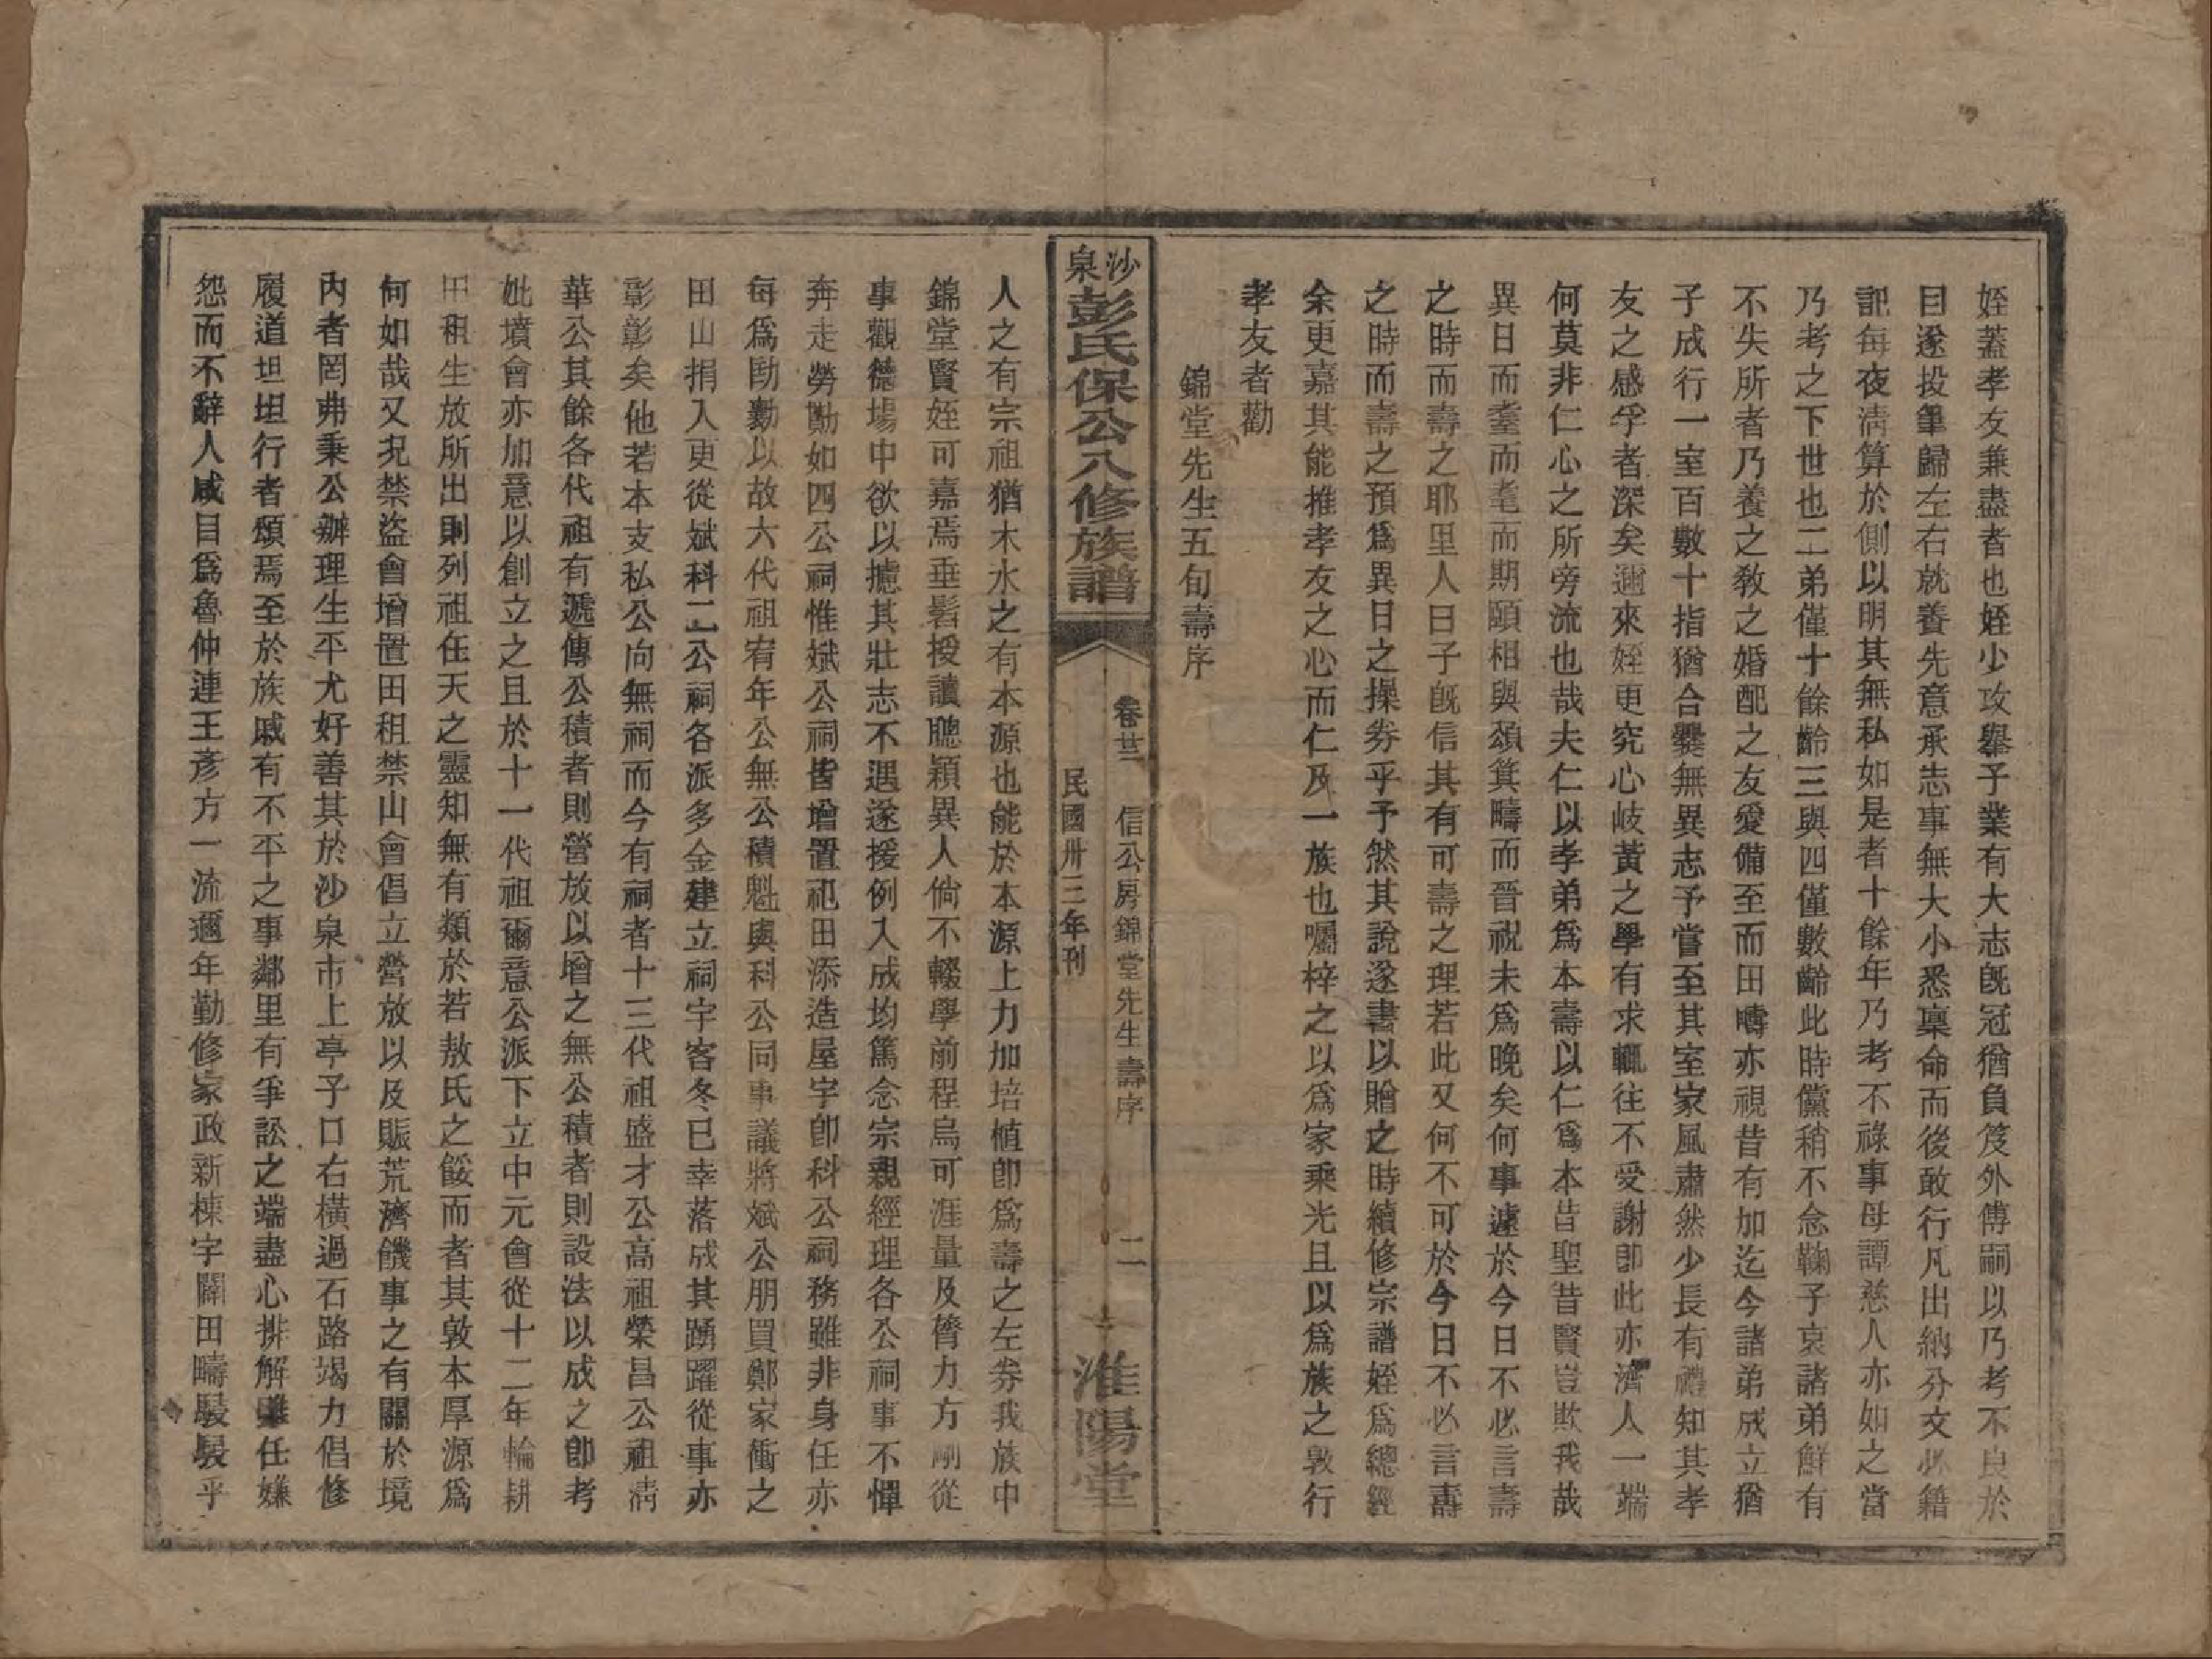 姪蓋孝友兼盡者也姪少攻舉子業有大志旣冠猶負笈外傅嗣以乃考不良於
目遂投筆歸左右就養先意承志事無大小悉稟命而後敢行凡出納分文必籍
記每夜清算於側以明其無私如是者十餘年乃考不祿事母譚慈人亦如之當
乃考之下世也二弟僅十餘齡三與四僅數齡此時儻稍不念鞠子哀諸弟鮮有
不失所者乃養之敎之婚配之友愛備至而田疇亦視昔有加迄今諸弟成立猶
子成行一室百數十指猶合爨無異志予嘗至其室家風肅然少長有禮知其孝
友之感孚者深矣邇來姪更究心岐黃之學有求輒往不受謝卽此亦濟人一端
何莫非仁心之所旁流也哉夫仁以孝弟爲本壽以仁爲本皆聖昔賢豈欺我哉
異日而耋而耄而期頤相與頌箕疇而晉祝未爲晚矣何事遽於今日不必言壽
之時而壽之耶里人曰子旣信其有可壽之理若此又何不可於今日不必言壽
之時而壽之預爲異日之操劵乎予然其說遂書以贈之時續修宗譜姪爲總經
余更嘉其能推孝友之心而仁及一族也囑梓之以爲家乘光且以爲族之敦行
孝友者勸
錦堂先生五旬壽序
沙泉彭氏保公八修族譜
卷廿二 信公房錦堂先生壽序 二
民國卅三年刊
淮陽堂
人之有宗祖猶木水之有本源也能於本源上力加培植卽爲壽之左劵我族中
錦堂賢姪可嘉焉垂髫授讀聰穎異人倘不輟學前程烏可涯量及膂力方剛從
事觀德場中欲以攄其壯志不遇遂援例入成均篤念宗親經理各公祠事不憚
奔走勞勩如四公祠惟斌公祠皆增置祀田添造屋宇卽科公祠務雖非身任亦
每爲勛勷以故六代祖宥年公無公積魁與科公同事議將斌公朋買鄭家衝之
田山捐入更從斌科二公祠各派多金建立祠宇客冬已幸落成其踴躍從事亦
彰彰矣他若本支私公向無祠而今有祠者十三代祖盛才公高祖榮昌公祖淸
華公其餘各代祖有遞傳公積者則營放以增之無公積者則設法以成之卽考
妣墳會亦加意以創立之且於十一代祖爾意公派下立中元會從十二年輪耕
田租生放所出則列祖在天之靈知無有類於若敖氏之餒而者其敦本厚源爲
何如哉又況禁盜會增置田租禁山會倡立營放以及賑荒濟饑事之有關於境
內者罔弗秉公辦理生平尤好善其於沙泉市上亭子口右橫過石路竭力倡修
履道坦坦行者頌焉至於族戚有不平之事鄰里有爭訟之端盡心排解雖任嫌
怨而不辭人咸目爲魯仲連王彥方一流邇年勤修家政新棟宇闢田疇駸駸乎